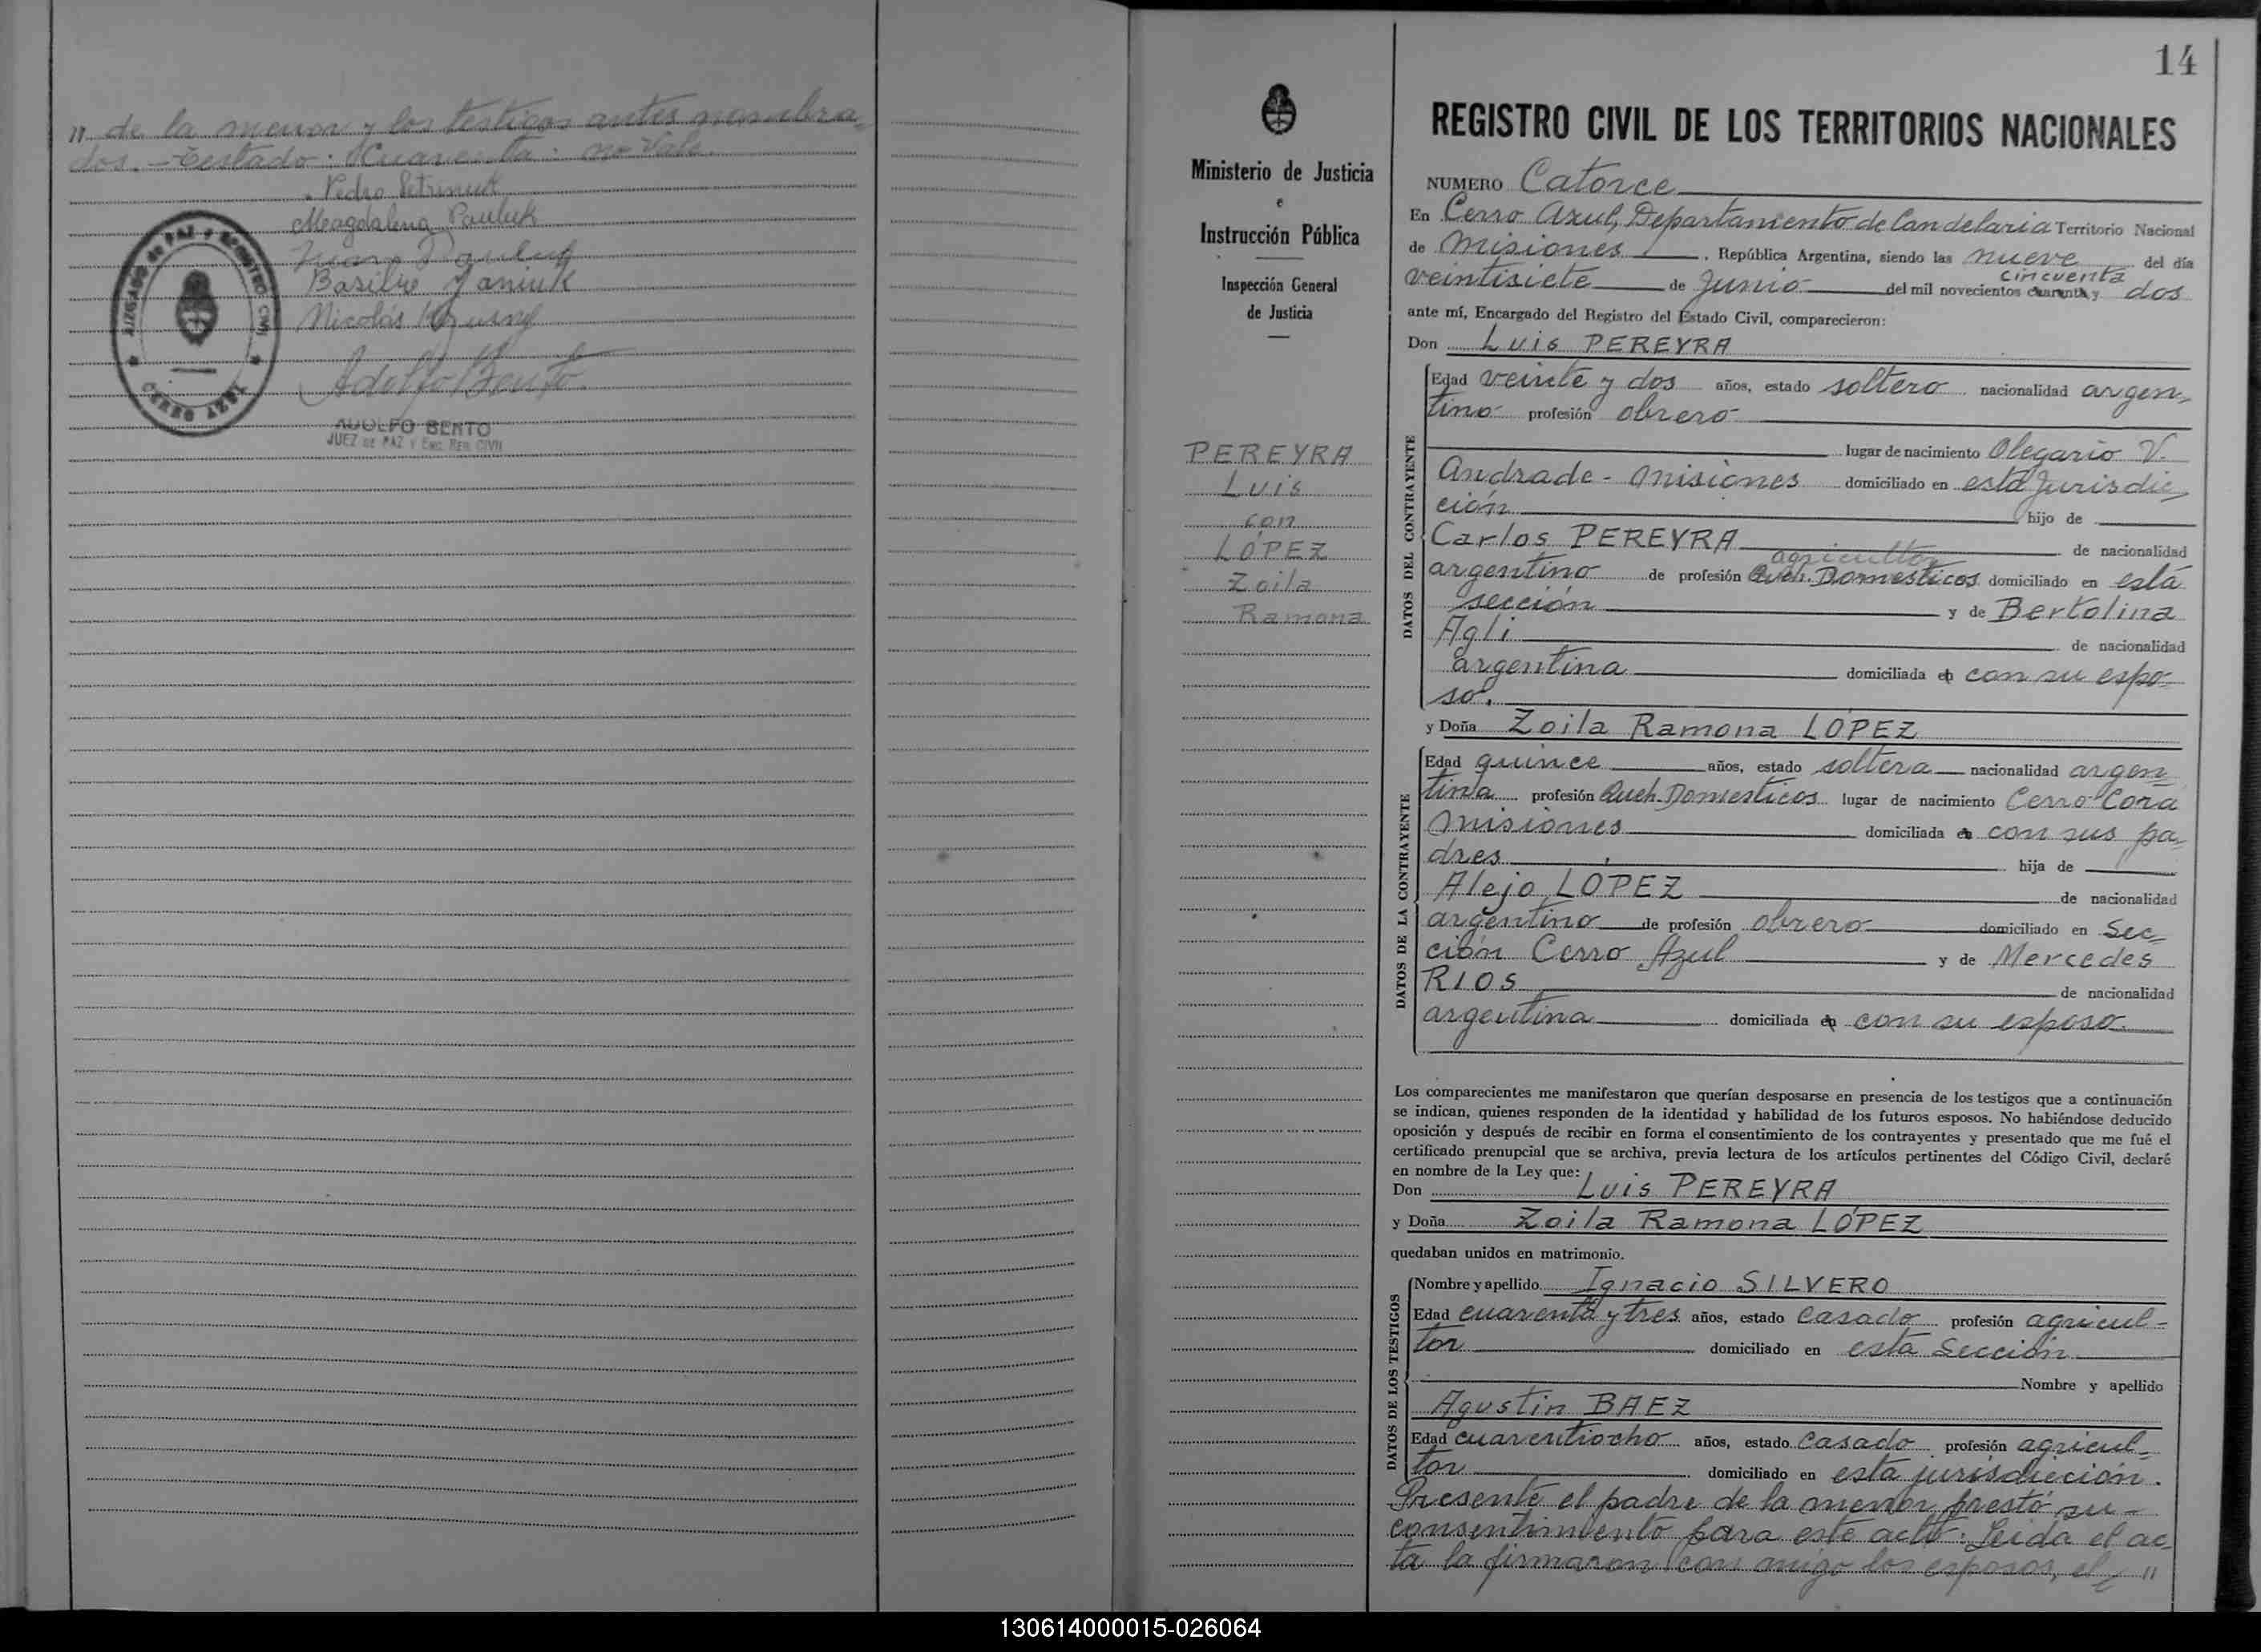 " de la menor y los testigos antes nombra=
dos.- Testado: Cuarenta: no Vale.
Pedro Petriniuk
Magdalena Pauluk
Juan Pauluk
Basilio Janiuk
Nicolás
JUZGADO DE PAZ Y REGISTRO CIVIL
CERRO AZUL
Adolfo Bento
ADOLFO BENTO
JUEZ DE PAZ Y ENC. REG. CIVIL
Ministerio de Justicia
e
Instrucción Pública
Inspección General
de Justicia
PEREYRA
Luis
con
LÓPEZ
Zoila
Ramona
14
REGISTRO CIVIL DE LOS TERRITORIOS NACIONALES
NUMERO Catorce
En Cerro Azul, Departamento de Candelaria Territorio Nacional
de Misiones, República Argentina, siendo las nueve del día
cincuenta
veintisiete de Junio del mil novecientos cuarenta y dos
ante mí, Encargado del Registro del Estado Civil, comparecieron:
Don Luis PEREYRA
DATOS DEL CONTRAYENTE
Edad veinte y dos años, estado soltero nacionalidad argen=
tino profesión obrero
lugar de nacimiento Olegario V.
Andrade - Misiones domiciliado en esta Jurisdic=
ción hijo de
Carlos PEREYRA de nacionalidad
agricultor
argentino de profesión Queh. Domesticos domiciliado en esta
sección y de Bertolina
Agli de nacionalidad
argentina domiciliada en con su espo=
so.
y Doña Zoila Ramona LÓPEZ
DATOS DE LA CONTRAYENTE
Edad quince años, estado soltera nacionalidad argen=
tina profesión Queh. Domesticos lugar de nacimiento Cerro Cora
Misiones domiciliada en con sus pa=
dres hija de
Alejo LÓPEZ de nacionalidad
argentino de profesión obrero domiciliado en Sec=
ción Cerro Azul y de Mercedes
RIOS de nacionalidad
argentina domiciliada en con su esposo.
Los comparecientes me manifestaron que querían desposarse en presencia de los testigos que a continuación
se indican, quienes responden de la identidad y habilidad de los futuros esposos. No habiéndose deducido
oposición y después de recibir en forma el consentimiento de los contrayentes y presentado que me fué el
certificado prenupcial que se archiva, previa lectura de los artículos pertinentes del Código Civil, declaré
en nombre de la Ley que:
Don Luis PEREYRA
y Doña Zoila Ramona LÓPEZ
quedaban unidos en matrimonio.
DATOS DE LOS TESTIGOS
Nombre y apellido Ignacio SILVERO
Edad cuarenta y tres años, estado casado profesión agricul-
tor domiciliado en esta Sección
Nombre y apellido
Agustin BAEZ
Edad cuarentiocho años, estado casado profesión agricul=
tor domiciliado en esta jurisdicción.
Presente el padre de la menor prestó su-
consentimiento para este acto: Leida el ac=
ta la firmaron con migo los esposos, el "
130614000015-026064